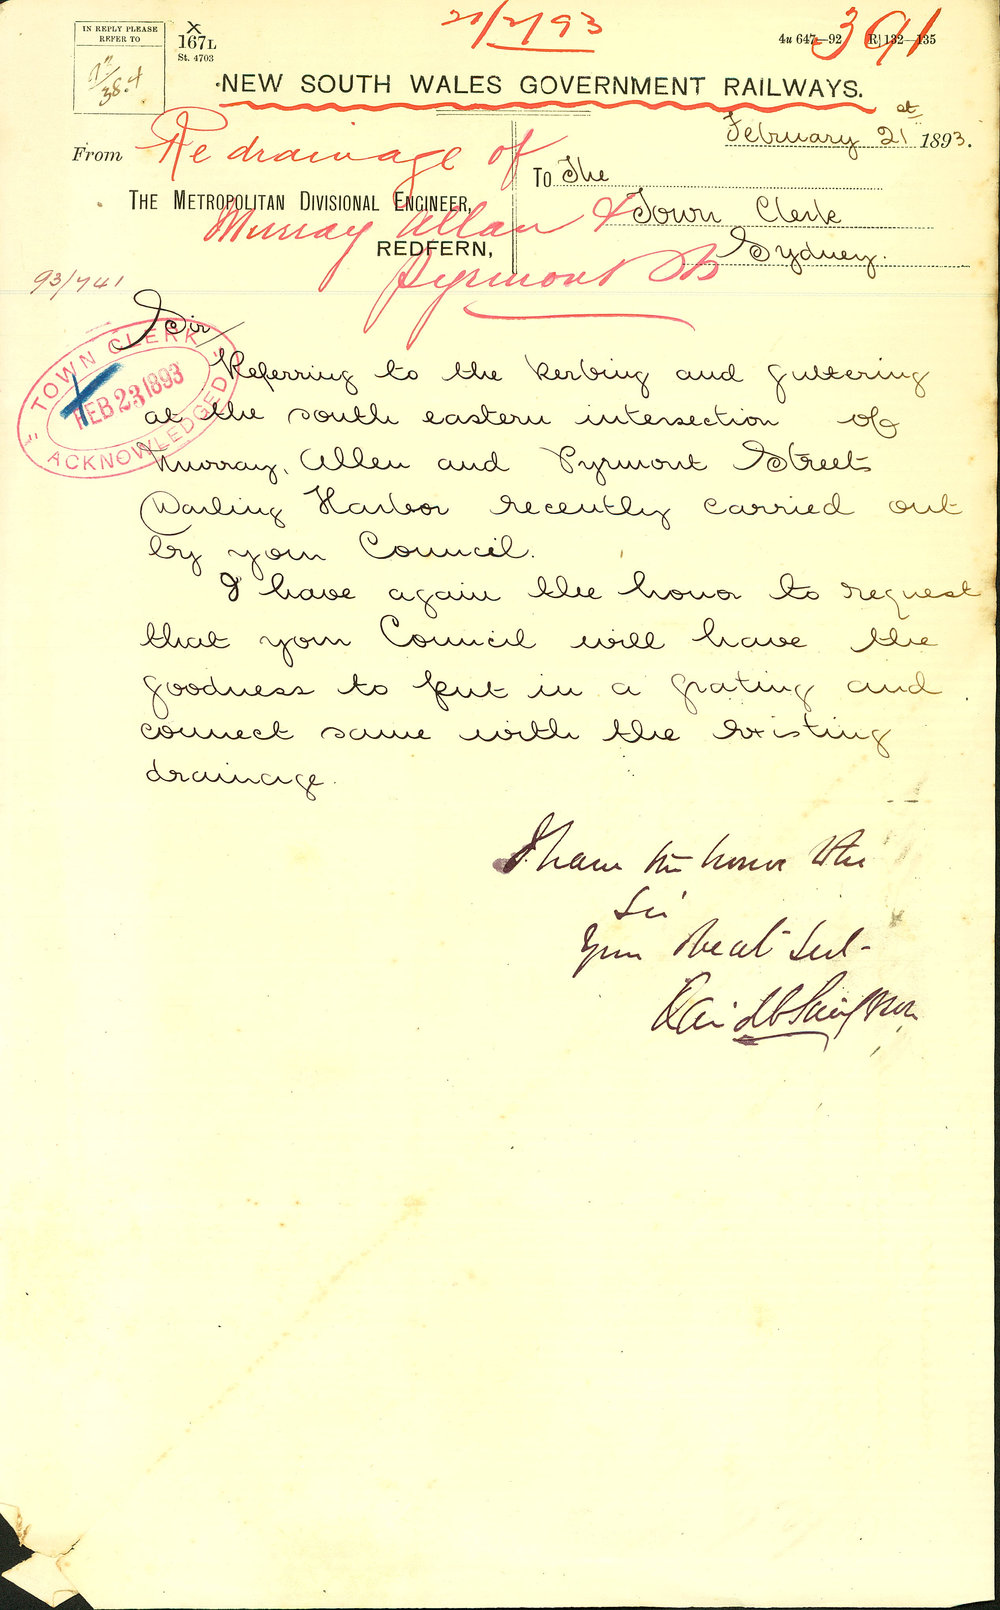 21/2/93
391
IN REPLY PLEASE
REFER TO
X
167L
St. 4703
4u 647—92 R|132—135
38.4
NEW SOUTH WALES GOVERNMENT RAILWAYS.
February 21st 1893.
From
Re drainage of
Murray Allan &
Pyrmont Sts
THE METROPOLITAN DIVISIONAL ENGINEER,
REDFERN,
To The
Town Clerk
Sydney.
93/741
TOWN CLERK
FEB 23 1893
ACKNOWLEDGED
Sir
Referring to the kerbing and guttering
at the south eastern intersection of
Murray, Allen and Pyrmont Streets
Darling Harbor recently carried out
by your Council.
I have again the honor to request
that your Council will have the
goodness to put in a grating and
connect same with the existing
drainage.
I have the honor to be
Sir
Your Obedt Servt